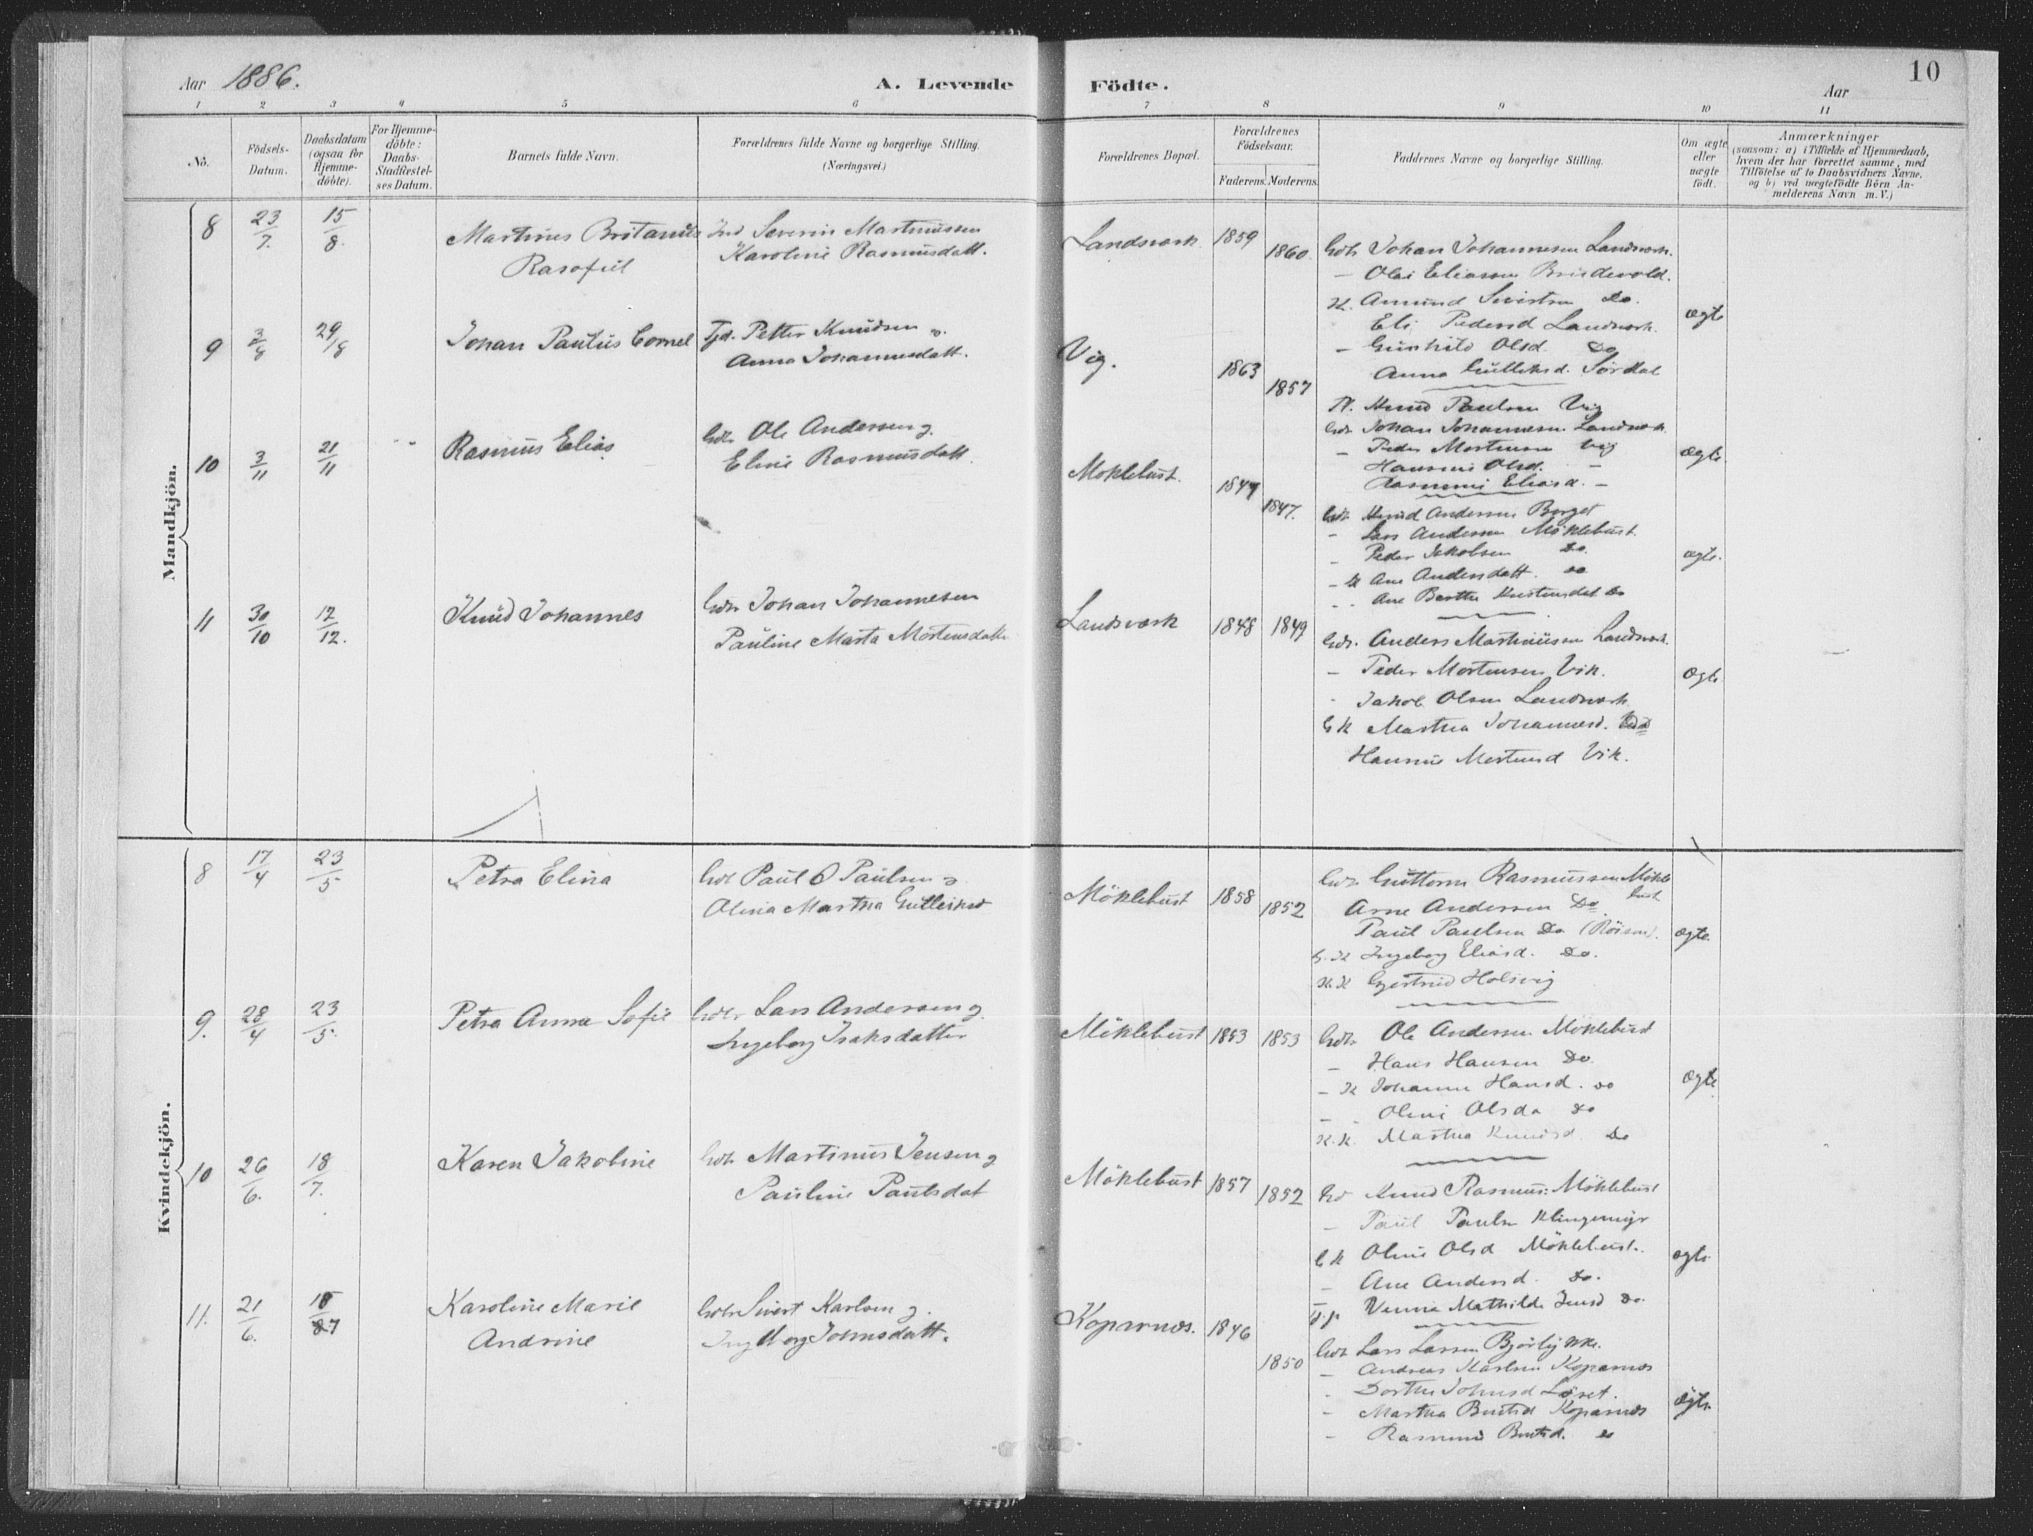 Aar 1886.
A. Levende Födte.
10
Aar
1 2 3 4 5 6 7 8 9 10 11
Nò.
Födsels-Datum.
Daabsdatum (ogsaa for Hjemme-döbte).
For Hjemme-döbte: Daabs-Stadfæstel-ses Datum.
Barnets fulde Navn.
Forældrenes fulde Navne og borgerlige Stilling. (Næringsvei.)
Forældrenes Bopæl.
Forældrenes Födselsaar.
Faderens. Moderens.
Faddernes Navne og borgerlige Stilling.
Om ægte eller uægte födt.
Anmærkninger
(saasom: a) i Tilfælde af Hjemmedaab, hvem der har forrettet samme, med Tilföielse af to Daabsvidners Navne, og b) ved uægtefödte Börn An-melderens Navn m.V.)
Mandkjön.
8 23/7 15/8. Martines
Severin Martinussen
Karoline Rasmusdatt.
Landsverk 1859 1860.
Johan Johannesen Landsverk.
Olai Eliassen
Amund Sivertsen Do.
Eli Pedersd Landsverk.
Gunhild Olsd. Do
Anna Gulleiksd. Sördal
ægte
9 3/8 29/8 Johan Paulus Cornel
Petter Knudsen
Anna Johannesdatt.
Vig. 1863 1857
Knud Paulsen Vig
Johan Johannesen Landsverk
Peder Mortensen Vig
Hansine Olsd. –
Eliasd. –
ægte
10 3/11 21/11 Rasmus Elias
Gdbr. Ole Andersen g.
Eline Rasmusdatt.
Möklebust. 1847 1847.
Knud Andersen Berget
Lars Andersen Möklebust.
Peder Jakobsen Do.
Ane Andersdatt. do
Ane Berthe Do
ægte.
11 30/10 12/12. Knud Johannes
Gdbr Johan Johannesen
Pauline Marta Mortensdatt
Landsverk 1848 1849
Gdbr. Anders Martinusen Landsverk
– Peder Mortensen Vik.
Jakob Olsen Landsverk
G K Martha Johannesd. Do
Hansine Mortensd Vik.
ægte
Kvindekjön.
8 17/4 23/5 Petra Elina
Gdbr Paul O Paulsen g
Olina Martha Gulleiksd
Möklebust 1858 1852
Gdbr Guttorm Rasmussen Mökle
bust
Arne Andersen Do
Paul Paulsen Do (Röisen).
G. K Ingeborg Eliasd. Do.
Gjertrud Holsvig
ægte
9. 28/4 23/5. Petra Anna Sofie
Gdbr Lars Andersen g
Ingeborg Isaksdatter
Möklebust 1853 1853
Gdbr. Ole Andersen Möklebust
– Hans Hansen Do.
– K Johanne Hansd. do
– Oline Olsda do
Martha Knudsd. Do
ægte
10 26/6. 18/7. Karen Jakobine
Gdbr Martinus Jensen g
Pauline Paulsdat
Möklebust 1857 1852
Knud Rasmus: Möklebust
– Paul Paulsn Klingenmyr
G K Oline Olsd Möklebust.
– Ane Andersd. Do.
Mathilde Jensd Do.
ægte
11. 21/6. 18/7 Karoline Marie
Andrine
Gdbr Sivert Karlsen g.
Ingeborg Johnsdatt.
Koparnes. 1846 1850
Gdbr Lars Larsen
– Andreas Karlsen Koparnes
Dorthe Johnsd Löset.
– Martha Berntsd Koparnes
– Rasmine Berntsd. do
ægte